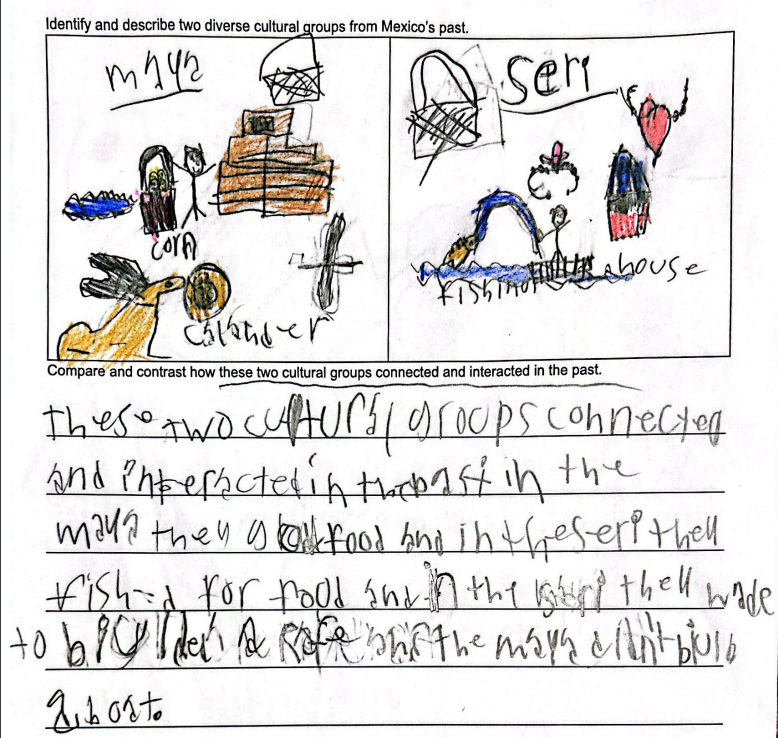 Identify and describe two diverse cultural groups from Mexico's past.
maya
seri
corn
house
fishing
calander
Compare and contrast how these two cultural groups connected and interacted in the past.
these two cultural groups connected
and interacted in the past in the
maya they food and in the seri they
fished for food and in the seri they made
to a and the maya didn't
a boat.